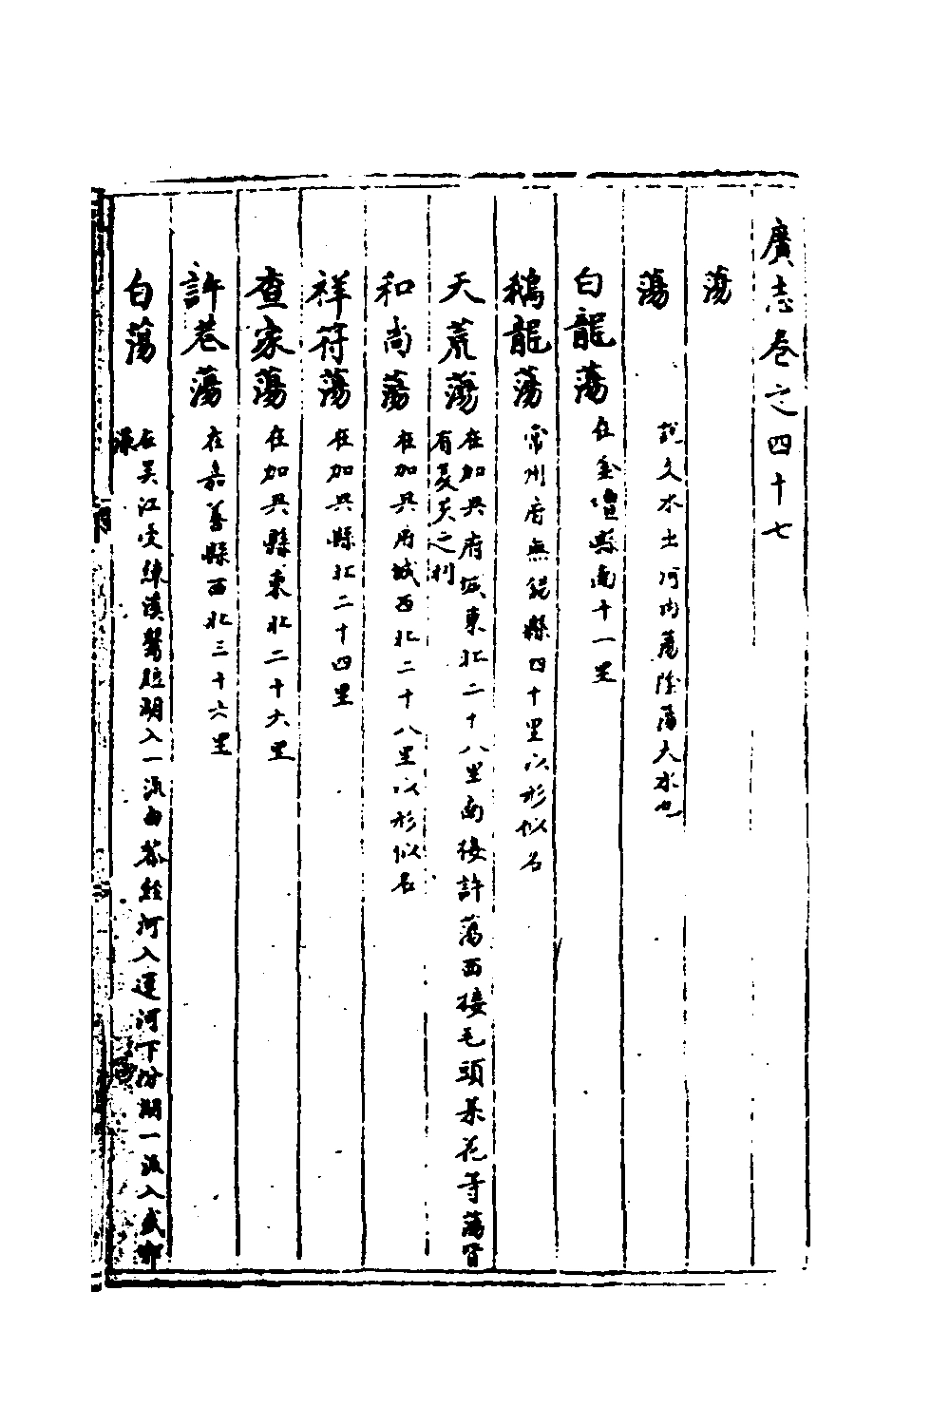 廣志卷之四十七
蕩
蕩 說文水出河內蕩陰蕩大水也
白龍蕩 在金壇縣南十一里
鵝龍蕩 常州府無錫縣四十里以形似名
天荒蕩 在加興府城東北二十八里南接許蕩西接毛頭菜花等蕩皆
有菱芡之利
和尚蕩 在加興府城西北二十八里以形似名
祥符蕩 在加興縣北二十四里
查家蕩 在加興縣東北二十六里
許巷蕩 在嘉善縣西北三十六里
白蕩 在吴江受練溪鶯脰湖入一派由茶經河入運河下分湖一派入